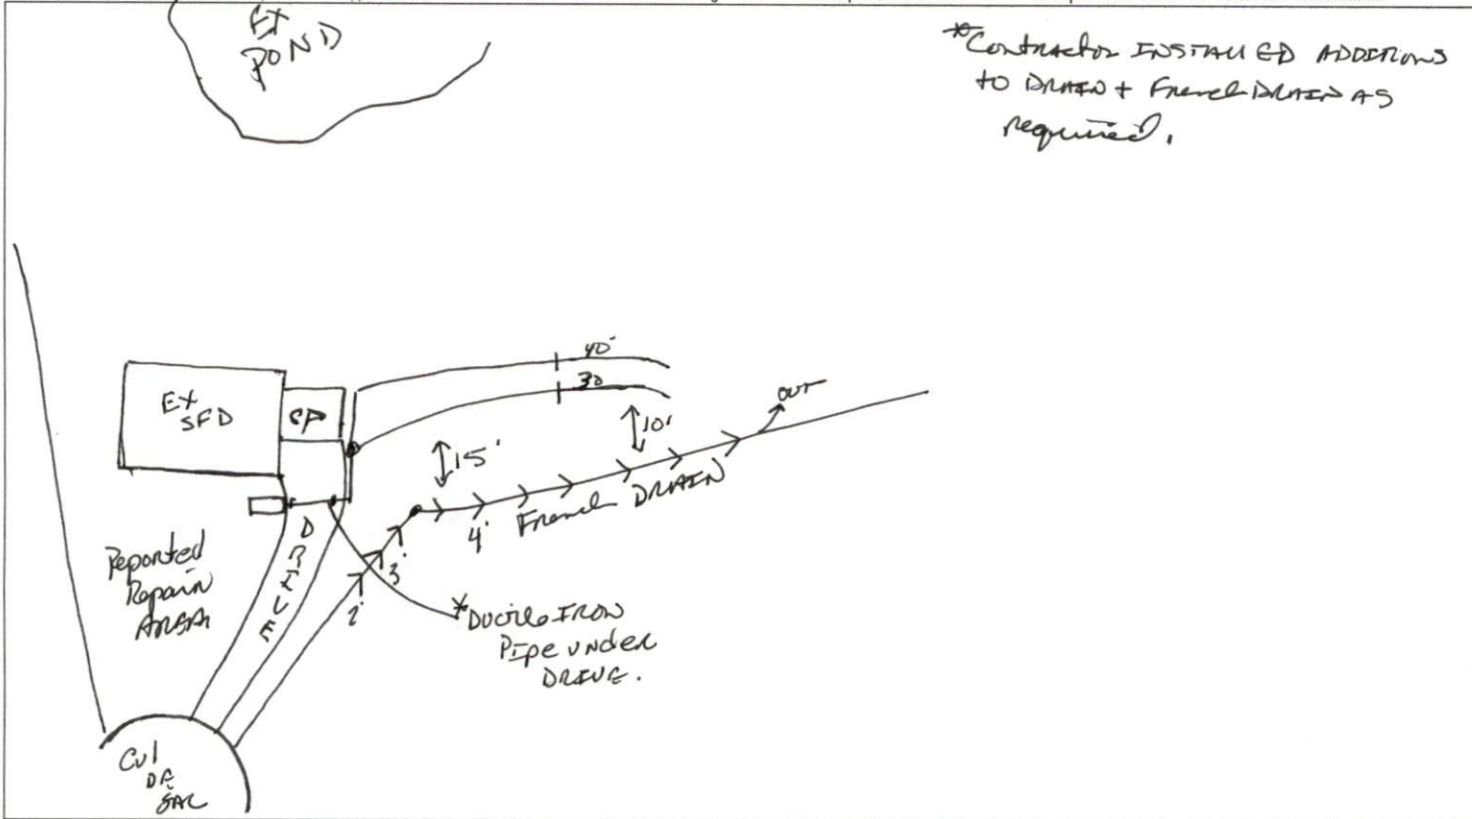 EX
POND
*Contractor INSTALLED ADDITIONS
to DRAIN + French DRAIN AS
required.
40'
30
EX
SFD
CP
OUT
10'
15'
French DRAIN
4'
3'
2'
DRIVE
Reported
Repair
AREA
*Ductile IRON
PIPE under
DRIVE.
Cul
DE
SAC